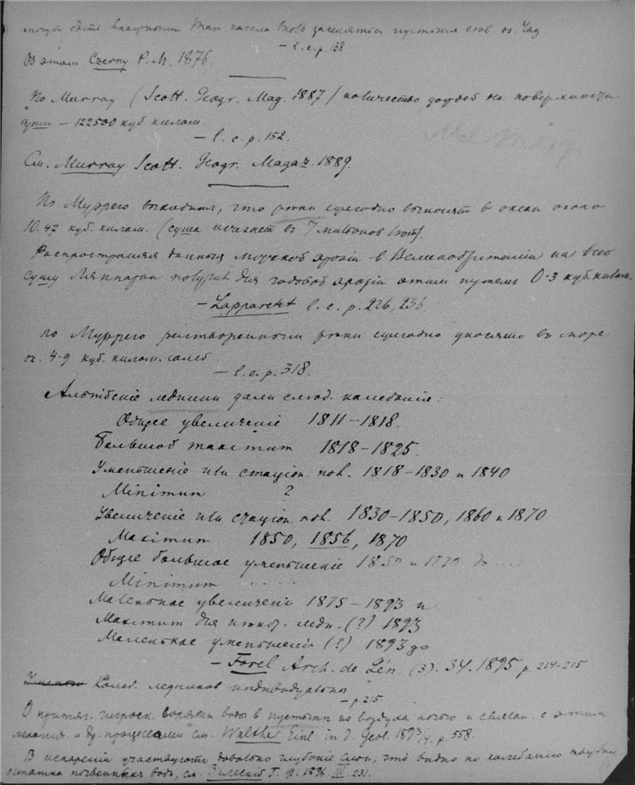 могутъ быть вакуумными. Такъ начала вновь заменяться пустыня
— l. c. p. 138
Объ этомъ Czerny P. M. 1876.
По Murray (Scott. Geogr. Mag. 1887) количество дождей на поверхности
суши — 122500 куб. килом.
— l. c. p. 152.
См. Murray Scott. Geogr. Magaz. 1889.
По Муррею выходитъ, что рѣки ежегодно выносятъ въ океан около
10.42 куб. килом. (суша исчезнетъ въ 7 милионов лѣт).
Распространяя данныя морской эрозіи въ Великобританіи на всю
сушу Ляппаран получил для годовой эрозіи этим путемъ 0.3 куб. килом.
— Lapparent l. c. p. 226, 236.
По Муррею растворенными рѣки ежегодно уносятъ въ море
ок. 4.9 куб. килом. солей
— l. c. p. 318.
Альпійскіе ледники дали слѣд. колебанія:
Общее увеличеніе 1811–1818.
Большой maximum 1818–1825.
Уменьшеніе или стаціон. пол. 1818–1830 и 1840
Minimum ?
Увеличеніе или стаціон. пол. 1830–1850, 1860 и 1870
Maximum 1850, 1856, 1870
Общее большое уменьшеніе 1850 и 1870 до ...
Minimum ....
Маленькое увеличеніе 1875–1893 и
Maximum для ледн. (?) 1893
Маленькое уменьшеніе (?) 1893 до
— Forel Arch. de Gén. (3). 34. 1895 p. 214–215
Колеб. ледников индивидуально
— p. 215
О притяг. гигроск. воды въ пустыняхъ изъ воздуха ночью и связан. с этим
и др. процессами см. Walther Einl. in d. Geol. 1893/4. p. 558.
В испареніи участвуютъ довольно глубокіе слои, что видно по колебанію
остатка почвенныхъ водъ, см. 1896. III. 231.